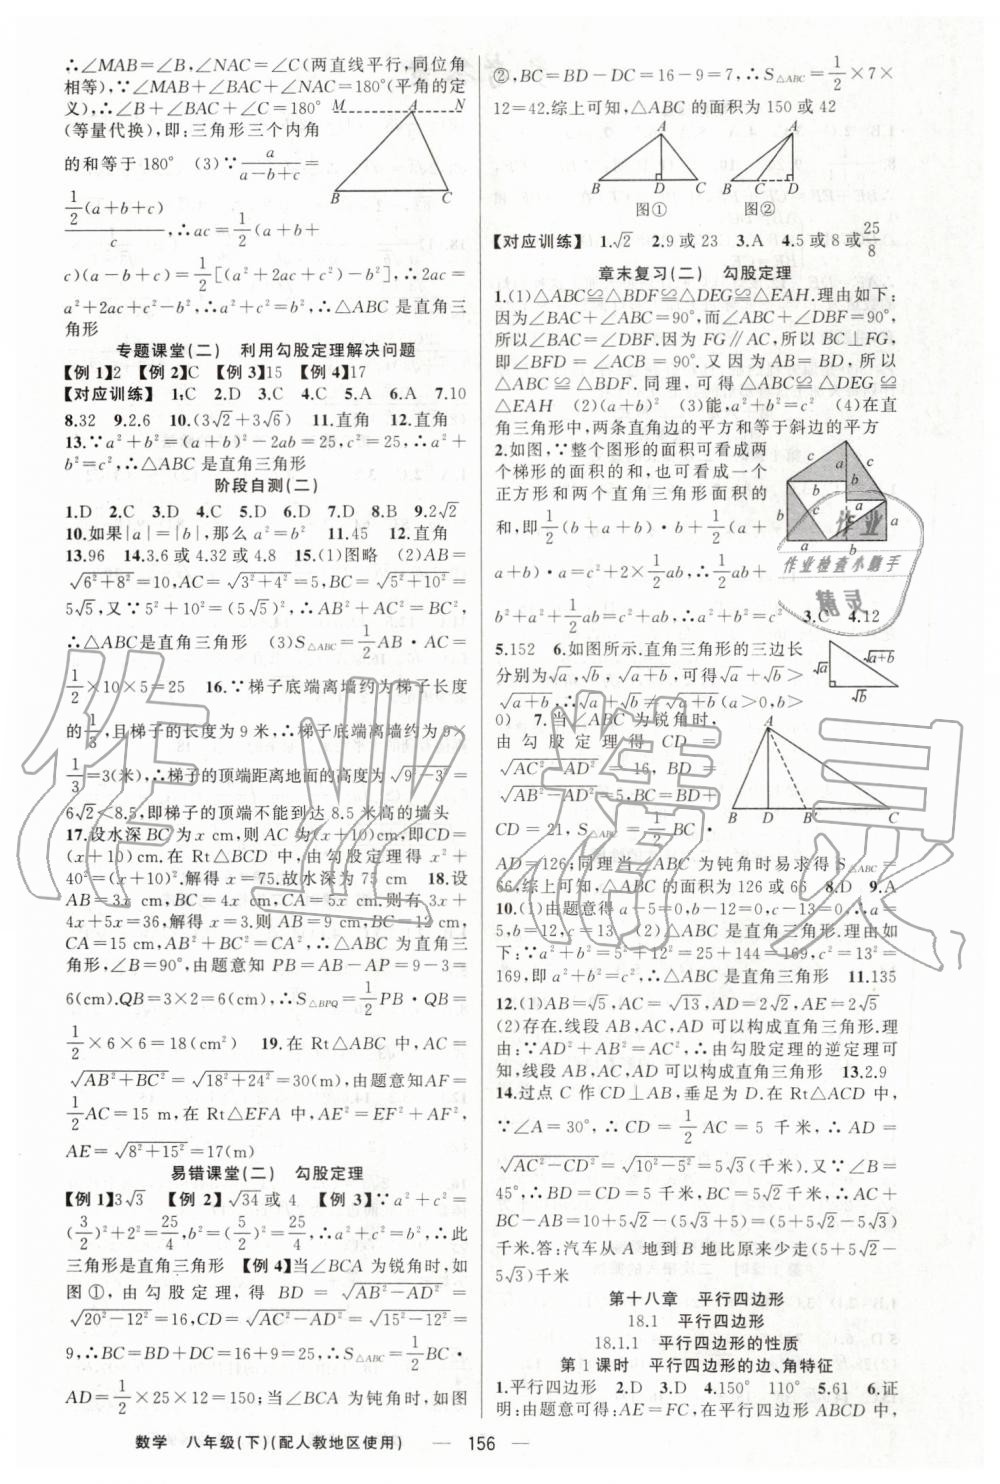 ∴∠MAB=∠B,∠NAC=∠C(两直线平行,同位角
相等),∵∠MAB+∠BAC+∠NAC=180°(平角的定
义),∴∠B+∠BAC+∠C=180°
(等量代换),即:三角形三个内角
的和等于180° (3)∵a/(a-b+c)=
½(a+b+c)/c,∴ac=½(a+b+
c)(a-b+c)=½[(a²+2ac+c²)-b²],∴2ac=
a²+2ac+c²-b²,∴a²+c²=b²,∴△ABC是直角三
角形
M A N
B C
专题课堂(二) 利用勾股定理解决问题
【例1】2 【例2】C 【例3】15 【例4】17
【对应训练】 1.C 2.D 3.C 4.C 5.A 6.A 7.10
8.32 9.2.6 10.(3√2+3√6) 11.直角 12.直角
13.∵a²+b²=(a+b)²-2ab=25,c²=25,∴a²+
b²=c²,∴△ABC是直角三角形
阶段自测(二)
1.D 2.C 3.D 4.C 5.D 6.D 7.D 8.B 9.2√2
10.如果|a|=|b|,那么a²=b² 11.45 12.直角
13.96 14.3.6或4.32或4.8 15.(1)图略 (2)AB=
√(6²+8²)=10,AC=√(3²+4²)=5,BC=√(5²+10²)=
5√5,又∵5²+10²=(5√5)²,∴AB²+AC²=BC²,
∴△ABC是直角三角形 (3)S△ABC=½AB·AC=
½×10×5=25 16.∵梯子底端离墙约为梯子长度
的⅓,且梯子的长度为9米,∴梯子底端离墙约为9×
⅓=3(米),∴梯子的顶端距离地面的高度为√(9²-3²)=
6√2<8.5,即梯子的顶端不能到达8.5米高的墙头
17.设水深BC为x cm,则AC为(x+10)cm,即CD=
(x+10)cm.在Rt△BCD中,由勾股定理得x²+
40²=(x+10)².解得x=75.故水深为75 cm 18.设
AB=3x cm,BC=4x cm,CA=5x cm.则有3x+
4x+5x=36,解得x=3.则AB=9 cm,BC=12 cm,
CA=15 cm,AB²+BC²=CA²,∴△ABC为直角三
角形,∠B=90°,由题意知PB=AB-AP=9-3=
6(cm).QB=3×2=6(cm),∴S△BPQ=½PB·QB=
½×6×6=18(cm²) 19.在Rt△ABC中,AC=
√(AB²+BC²)=√(18²+24²)=30(m),由题意知AF=
½AC=15 m,在Rt△EFA中,AE²=EF²+AF²,
AE=√(8²+15²)=17(m)
易错课堂(二) 勾股定理
【例1】3√3 【例2】√34或4 【例3】∵a²+c²=
(3/2)²+2²=25/4,b²=(5/2)²=25/4,∴a²+c²=b²,∴此
三角形是直角三角形 【例4】当∠BCA为锐角时,如
图①,由勾股定理,得BD=√(AB²-AD²)=
√(20²-12²)=16,CD=√(AC²-AD²)=√(15²-12²)=
9,∴BC=BD+DC=16+9=25,∴S△ABC=½BC·
AD=½×25×12=150;当∠BCA为钝角时,如图
②,BC=BD-DC=16-9=7,∴S△ABC=½×7×
12=42.综上可知,△ABC的面积为150或42
A A
B D C B C D
图① 图②
【对应训练】 1.√2 2.9或23 3.A 4.5或8或25/8
章末复习(二) 勾股定理
1.(1)△ABC≌△BDF≌△DEG≌△EAH.理由如下:
因为∠BAC+∠ABC=90°,而∠ABC+∠DBF=90°,
所以∠BAC=∠DBF.因为FG∥AC,所以BC⊥FG,
即∠BFD=∠ACB=90°.又因为AB=BD,所以
△ABC≌△BDF.同理,可得△ABC≌△DEG≌
△EAH (2)(a+b)² (3)能,a²+b²=c² (4)在直
角三角形中,两条直角边的平方和等于斜边的平方
2.如图,∵整个图形的面积可看成两
个梯形的面积的和,也可看成一个
正方形和两个直角三角形面积的
和,即½(b+a+b)·b+½(a+
a+b)·a=c²+2×½ab,∴½ab+
b²+a²+½ab=c²+ab,∴a²+b²=c² 3.C 4.12
5.152 6.如图所示.直角三角形的三边长
分别为√a,√b,√(a+b),可得√a+√b>
√(a+b),∴√a+√b≠√(a+b)(a>0,b>
0) 7.当∠ABC为锐角时,
由勾股定理得CD=
√(AC²-AD²)=16,BD=
√(AB²-AD²)=5,BC=BD+
CD=21,S△ABC=½BC·
AD=126;同理当∠ABC为钝角时易求得S△ABC=
66,综上可知,△ABC的面积为126或66 8.D 9.A
10.(1)由题意得a-5=0,b-12=0,c-13=0.∴a=
5,b=12,c=13 (2)△ABC是直角三角形.理由如
下:∵a²+b²=5²+12²=25+144=169,c²=13²=
169,即a²+b²=c²,∴△ABC是直角三角形 11.135
12.(1)AB=√5,AC=√13,AD=2√2,AE=2√5
(2)存在.线段AB,AC,AD可以构成直角三角形.理
由:∵AD²+AB²=AC²,∴由勾股定理的逆定理可
知,线段AB,AC,AD可以构成直角三角形 13.2.9
14.过点C作CD⊥AB,垂足为D.在Rt△ACD中,
∵∠A=30°,∴CD=½AC=5千米,∴AD=
√(AC²-CD²)=√(10²-5²)=5√3(千米).又∵∠B=
45°,∴BD=CD=5千米,BC=5√2千米,∴AC+
BC-AB=10+5√2-(5√3+5)=(5+5√2-5√3)
千米.答:汽车从A地到B地比原来少走(5+5√2-
5√3)千米
第十八章 平行四边形
18.1 平行四边形
18.1.1 平行四边形的性质
第1课时 平行四边形的边、角特征
1.平行四边形 2.D 3.D 4.150° 110° 5.61 6.证
明:由题意可得:AE=FC,在平行四边形ABCD中,
数学 八年级(下)(配人教地区使用) — 156 —
作业精灵
作业
作业检查小助手